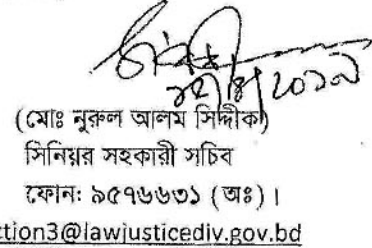 (মোঃ নুরুল আলম সিদ্দীক)
সিনিয়র সহকারী সচিব
ফোন: ৯৫৭৬৬৩১ (অঃ)।
ction3@lawjusticediv.gov.bd